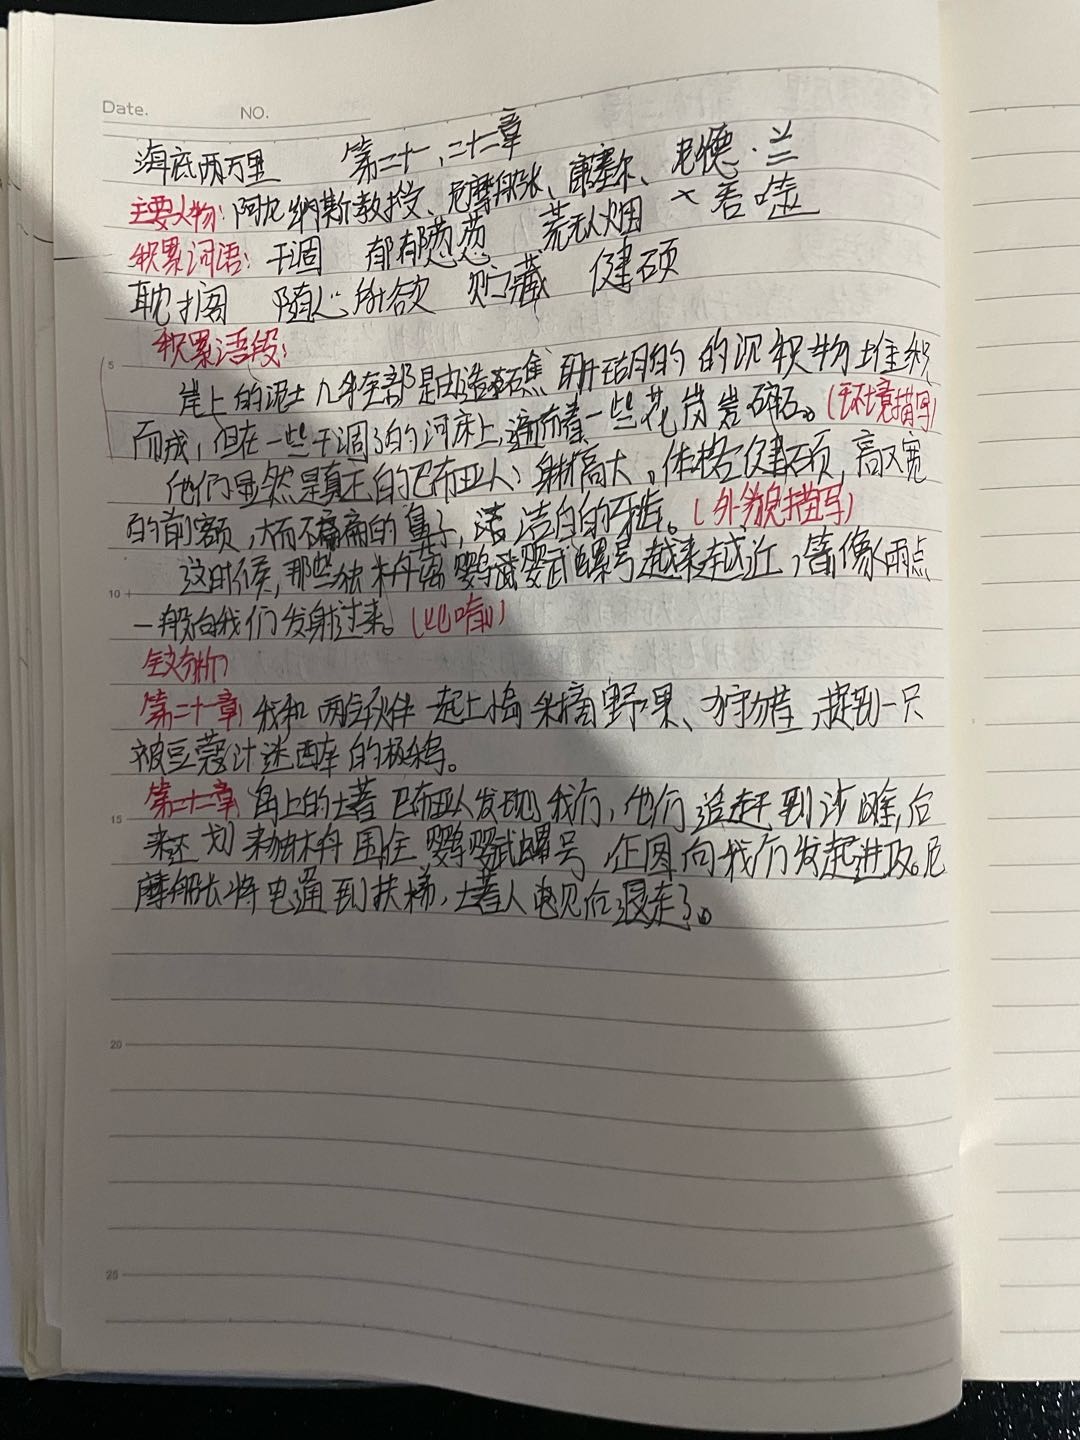 Date. NO.
海底两万里 第二十一、二十二章
主要人物：阿龙纳斯教授、尼摩船长、康塞尔、尼德·兰
积累词语：干涸 郁郁葱葱 荒无人烟
耽搁 随心所欲 贮藏 健硕
积累语段：
5 岸上的泥土几乎全部是由造礁珊瑚的的沉积物堆积
而成，但在一些干涸了的河床上，遍布着一些花岗岩碎石。（环境描写）
他们显然是真正的巴布亚人：身材高大，体格健硕，高又宽
的前额，大而不扁的鼻子，洁白的牙齿。（外貌描写）
10 这时候，那些独木舟离鹦鹉螺号越来越近，箭像雨点
一般向我们发射过来。（比喻）
全文分析
第二十一章：我和两名伙伴一起上岛采摘野果、狩猎，捉到一只
被豆蔻汁迷醉的极乐鸟。
15 第二十二章：岛上的土著巴布亚人发现我们，他们追赶到沙滩，后
来还划来独木舟围住鹦鹉螺号，企图向我们发起进攻。尼
摩船长将电通到扶梯，土著人电见后退走了。
20
25